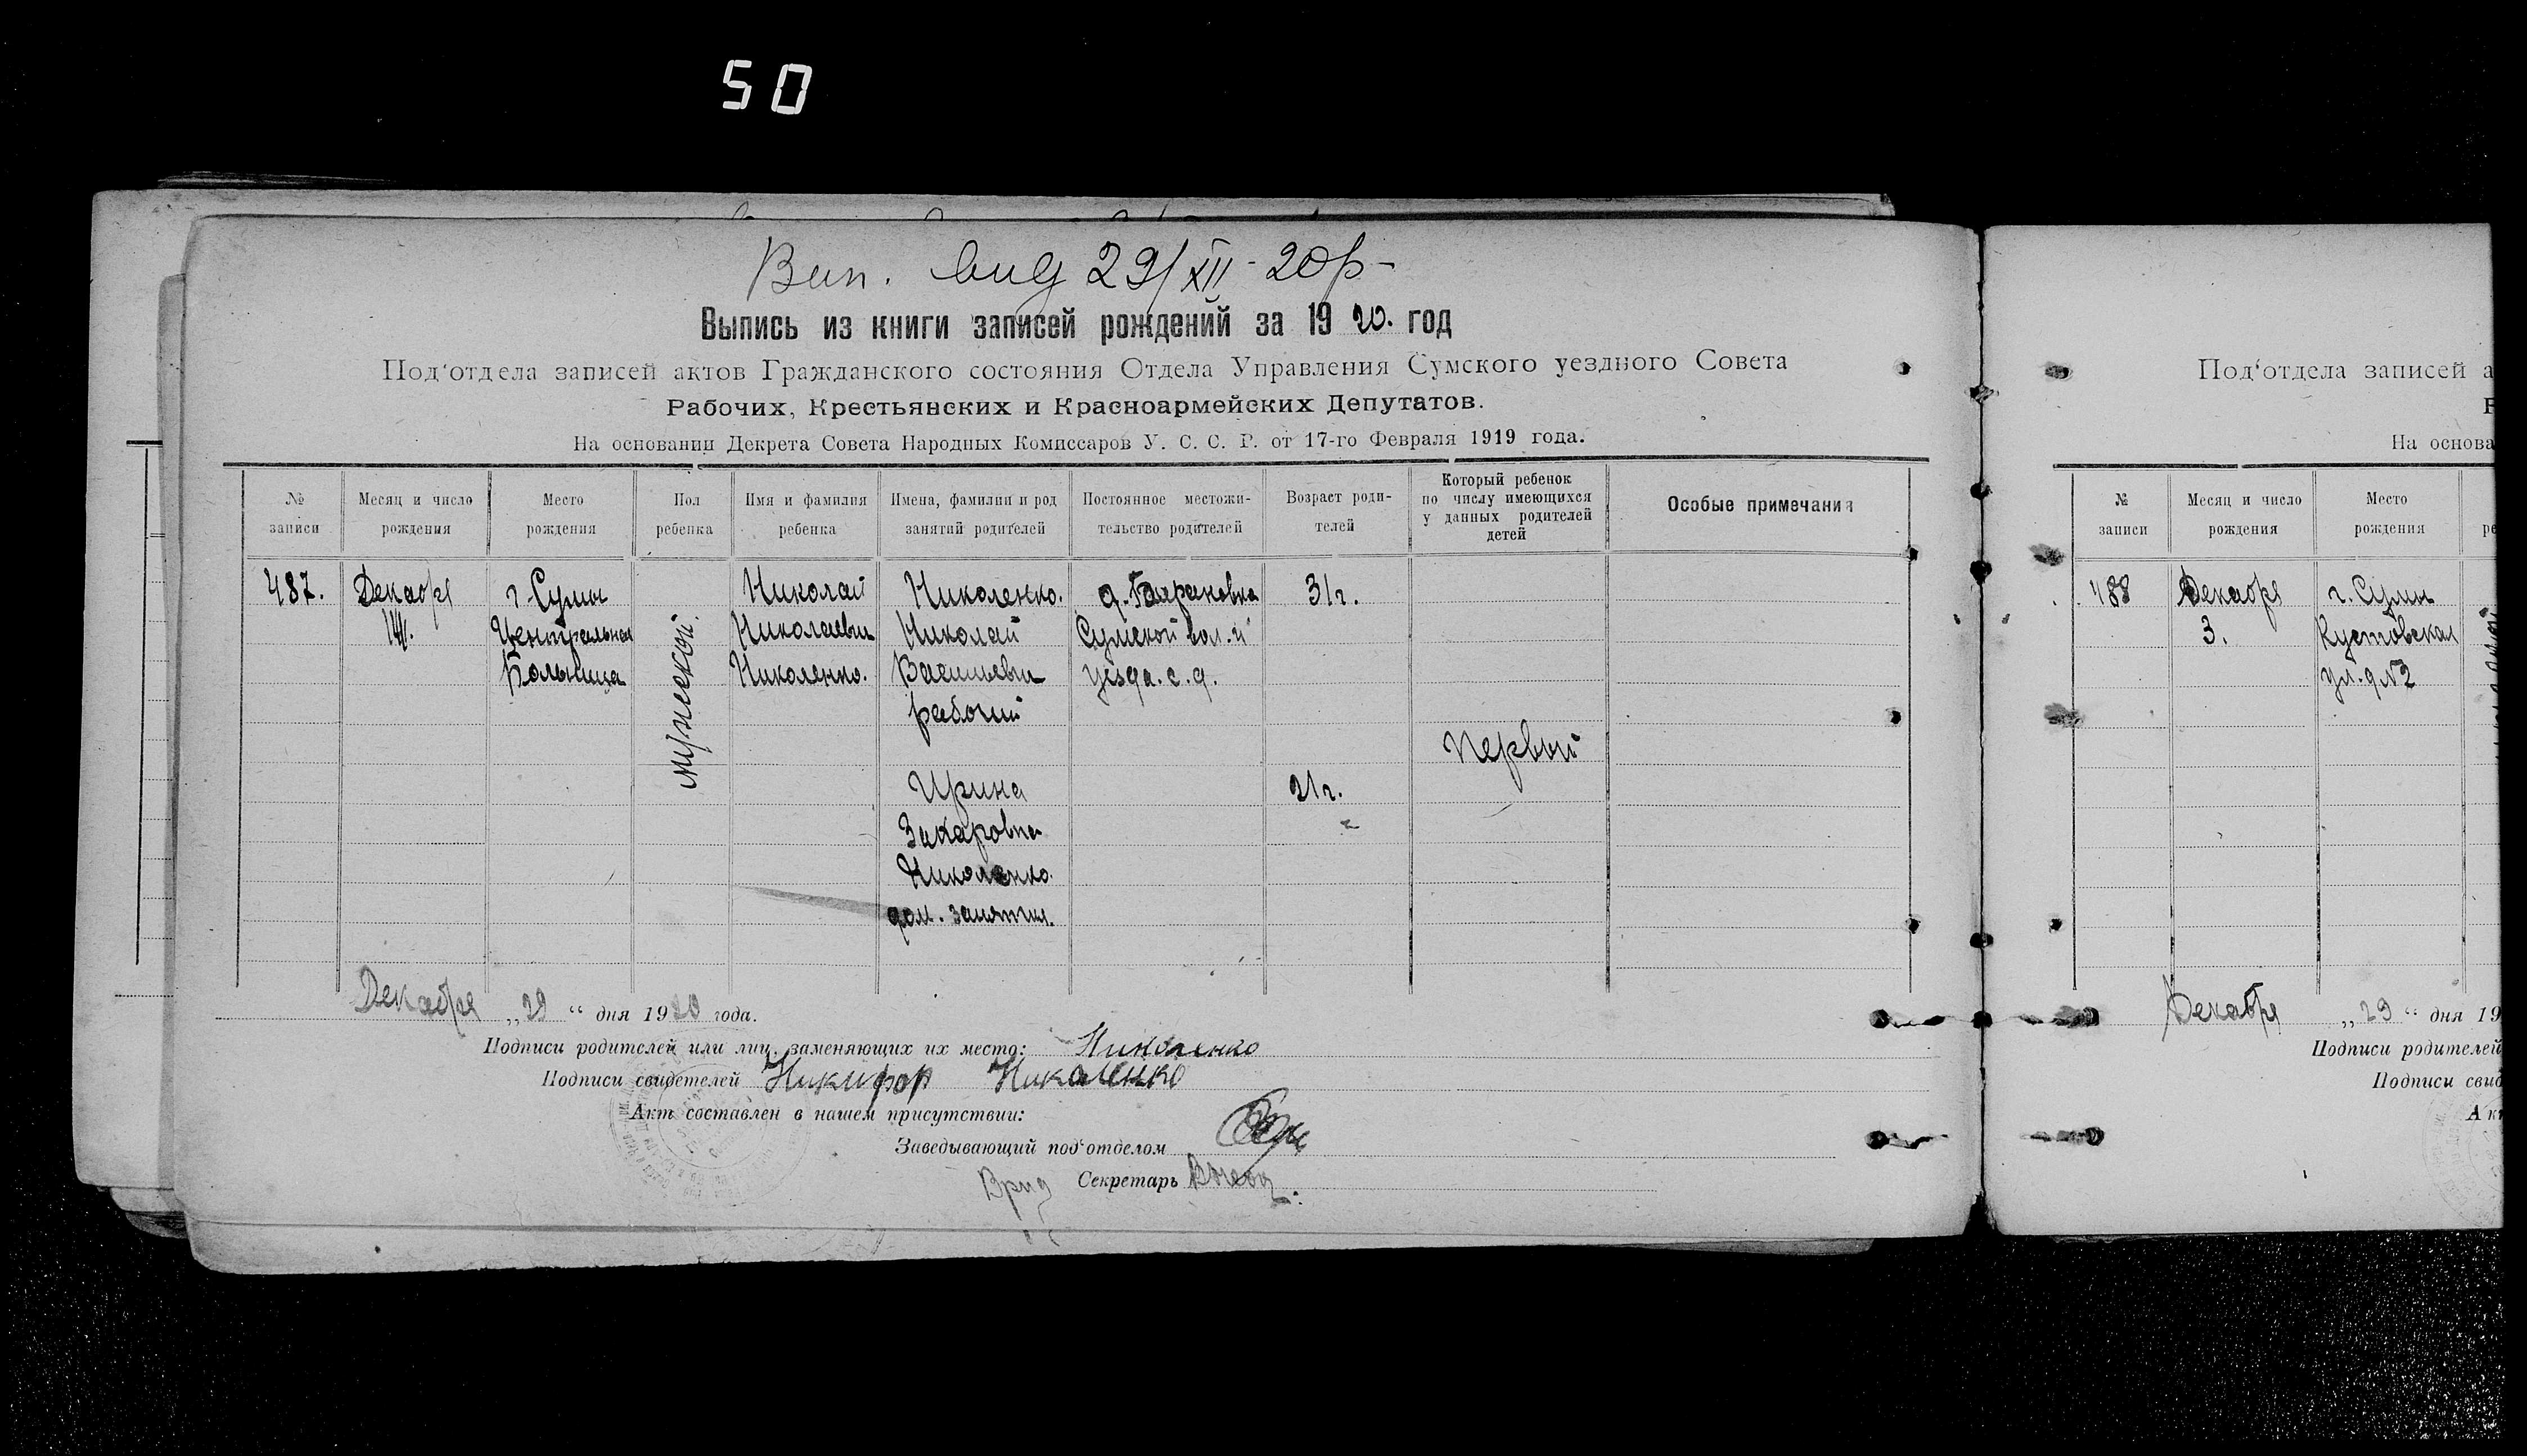 50
Вип. вид 29/XII-20р-
Выпись из книги записей рождений за 1920. год
Под‘отдела записей актов Гражданского состояния Отдела Управления Сумского уездного Совета
Рабочих, Крестьянских и Красноармейских Депутатов.
На основании Декрета Совета Народных Комиссаров У. С. С. Р. от 17-го Февраля 1919 года.
№ записи
Месяц и число рождения
Место рождения
Пол ребенка
Имя и фамилия ребенка
Имена, фамилии и род занятий родителей
Постоянное местожительство родителей
Возраст родителей
Который ребенок по числу имеющихся у данных родителей детей
Особые примечания
487.
Декабря
14.
г. Сумы
Центральная
Больница
мужеской.
Николай
Николаевич
Николенко.
Николенко.
Николай
Васильевич
рабочий
Ирина
Захаровна
Николенко.
дом. занятия.
Сумской вол. и
уезда. с. д.
31 г.
21 г.
Первый
Декабря „29“ дня 1920 года.
Подписи родителей или лиц. заменяющих их место: Николенко
Подписи свидетелей Никифор Николенко
Акт составлен в нашем присутствии:
Заведывающий под‘отделом
Врид Секретарь
Под‘отдела записей а
На основа
№ записи
Месяц и число рождения
Место рождения
488
Декабря
3.
г. Сумы
Кустовская
ул. д №2
Декабря „29“ дня 19
Подписи родителей
Подписи свид
Ак